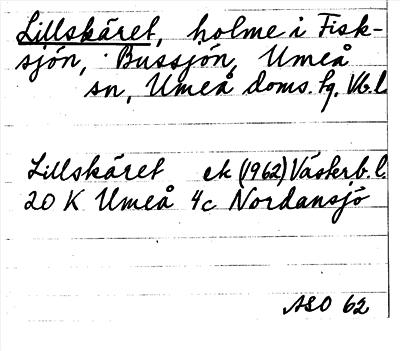 Lillskäret, holme i Fisk-
sjön, Bussjön, Umeå
sn, Umeå doms. fq. Vb. l.
Lillskäret ek (1962) Västerb. l
20 K Umeå 4c Nordansjö
ASO 62